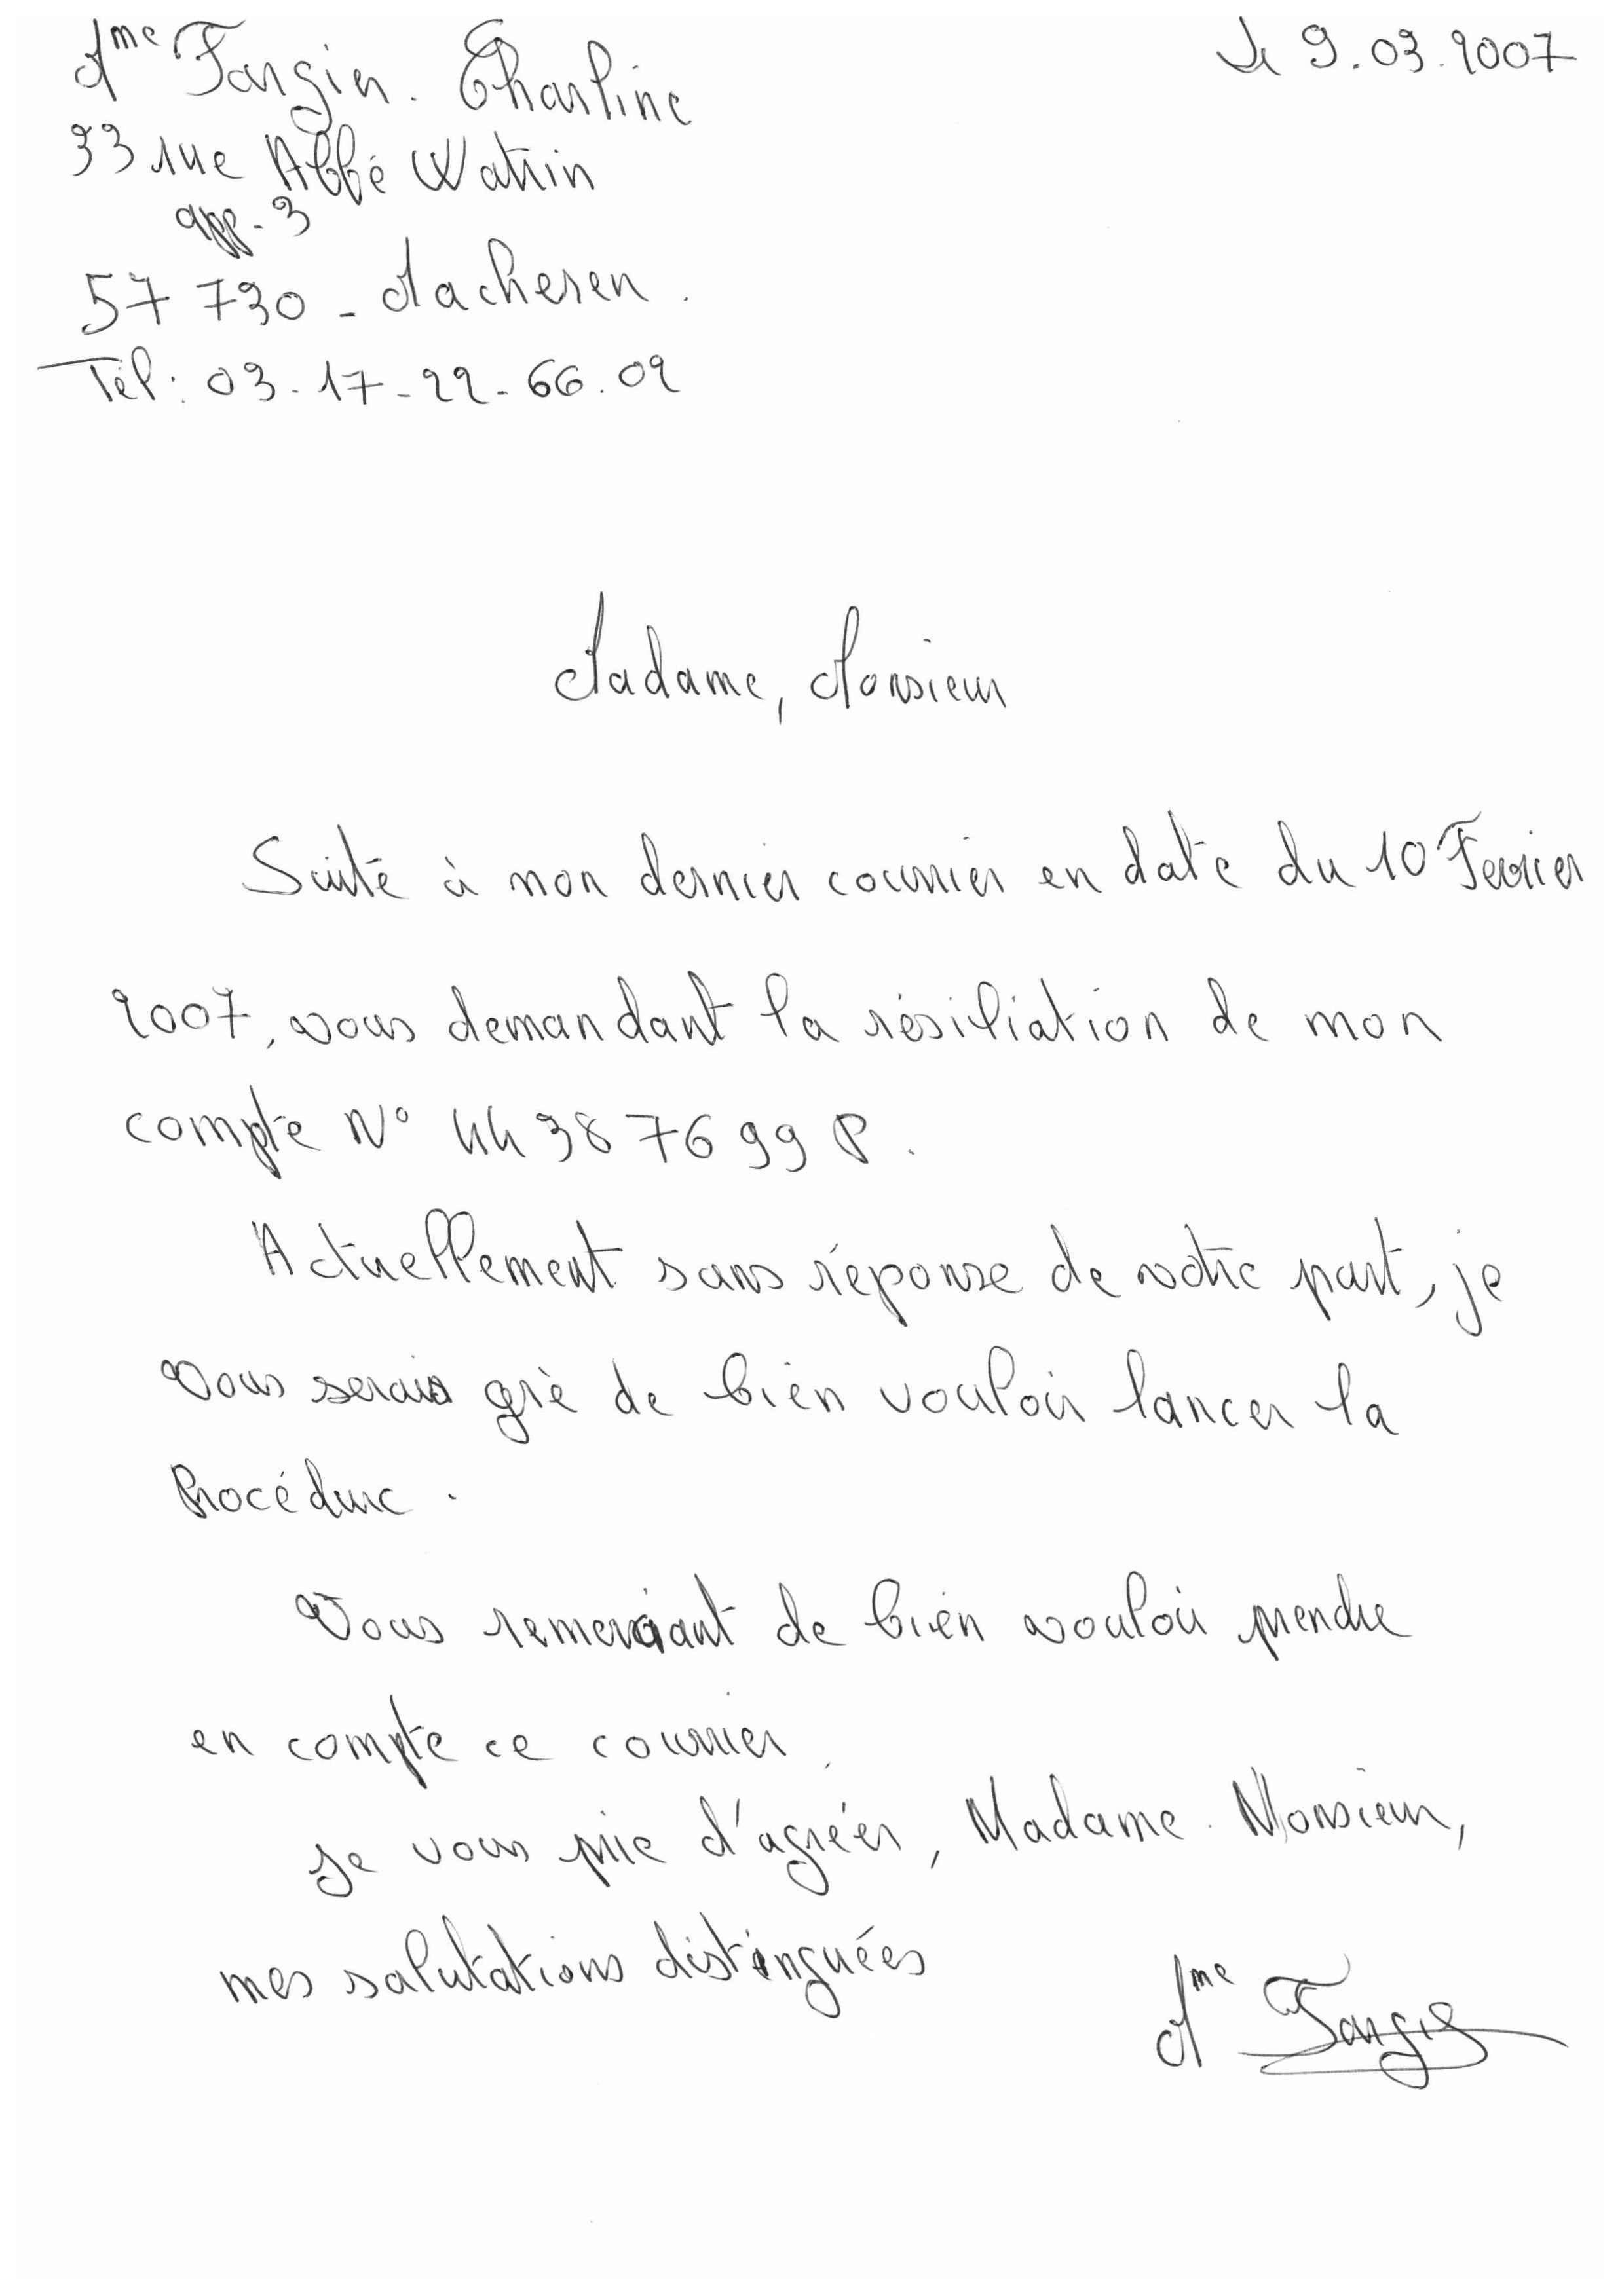 Mme Fargier. Charline
Le 9.03.2007
33 rue Abbé Watrin
app. 3
57 730 - Macheren.
Tél : 03.17-22-66.02
Madame, Monsieur
Suite à mon dernier courrier en date du 10 Fevrier
2007, vous demandant la résiliation de mon
compte N° 44 38 76 99 P.
Actuellement sans réponse de votre part, je
vous serais gré de bien vouloir lancer la
Procédure.
Vous remerciant de bien vouloir prendre
en compte ce courrier.
Je vous prie d'agréer, Madame. Monsieur,
mes salutations distinguées
Mme Fargier